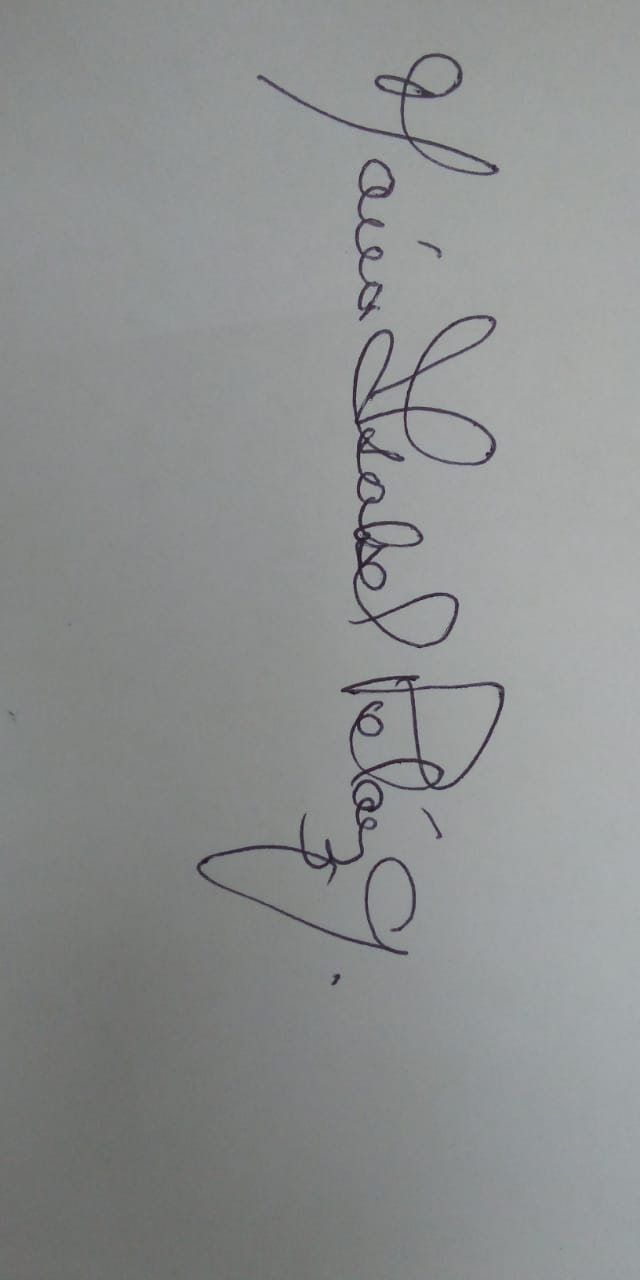 María Isabel Peláez G.